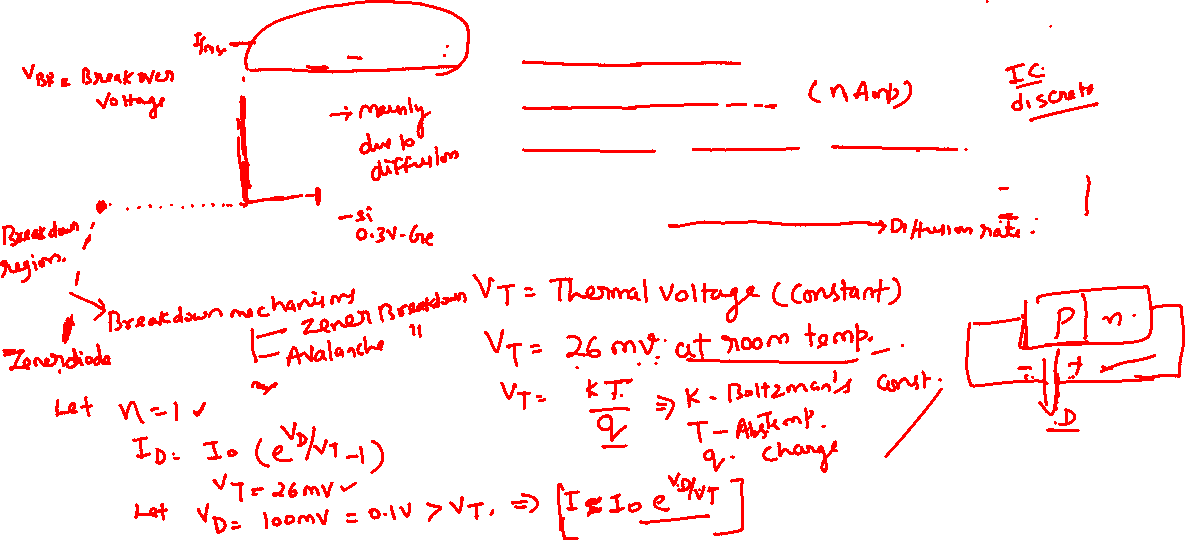 VBR = Breakover
Voltage
→ mainly
due to
diffusion
(nAmp)
IC
discrete
- Si
0.3V - Ge
→ Diffusion rate.
Breakdown
region.
Breakdown mechanisms
Zener Breakdown
Avalanche "
Zener diode
VT = Thermal Voltage (Constant)
VT = 26 mV. at room temp.
VT = KT/q ⇒ K - Boltzman's Const.
T - Abs Temp.
q. charge
P n.
- +
D
Let n = 1 ✓
ID = Io (e^VD/VT -1)
VT = 26mV ✓
Let VD = 100mV = 0.1V > VT. ⇒ [I ≈ Io e^VD/VT]